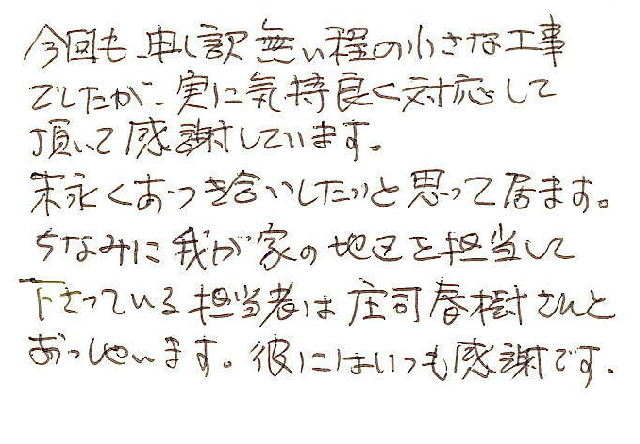 今回も、申し訳無い程の小さな工事
でしたが、実に気持良く対応して
頂いて感謝しています。
末永くおつき合いしたいと思って居ます。
ちなみに我が家の地区を担当して
下さっている担当者は庄司春樹さんと
おっしゃいます。彼にはいつも感謝です。